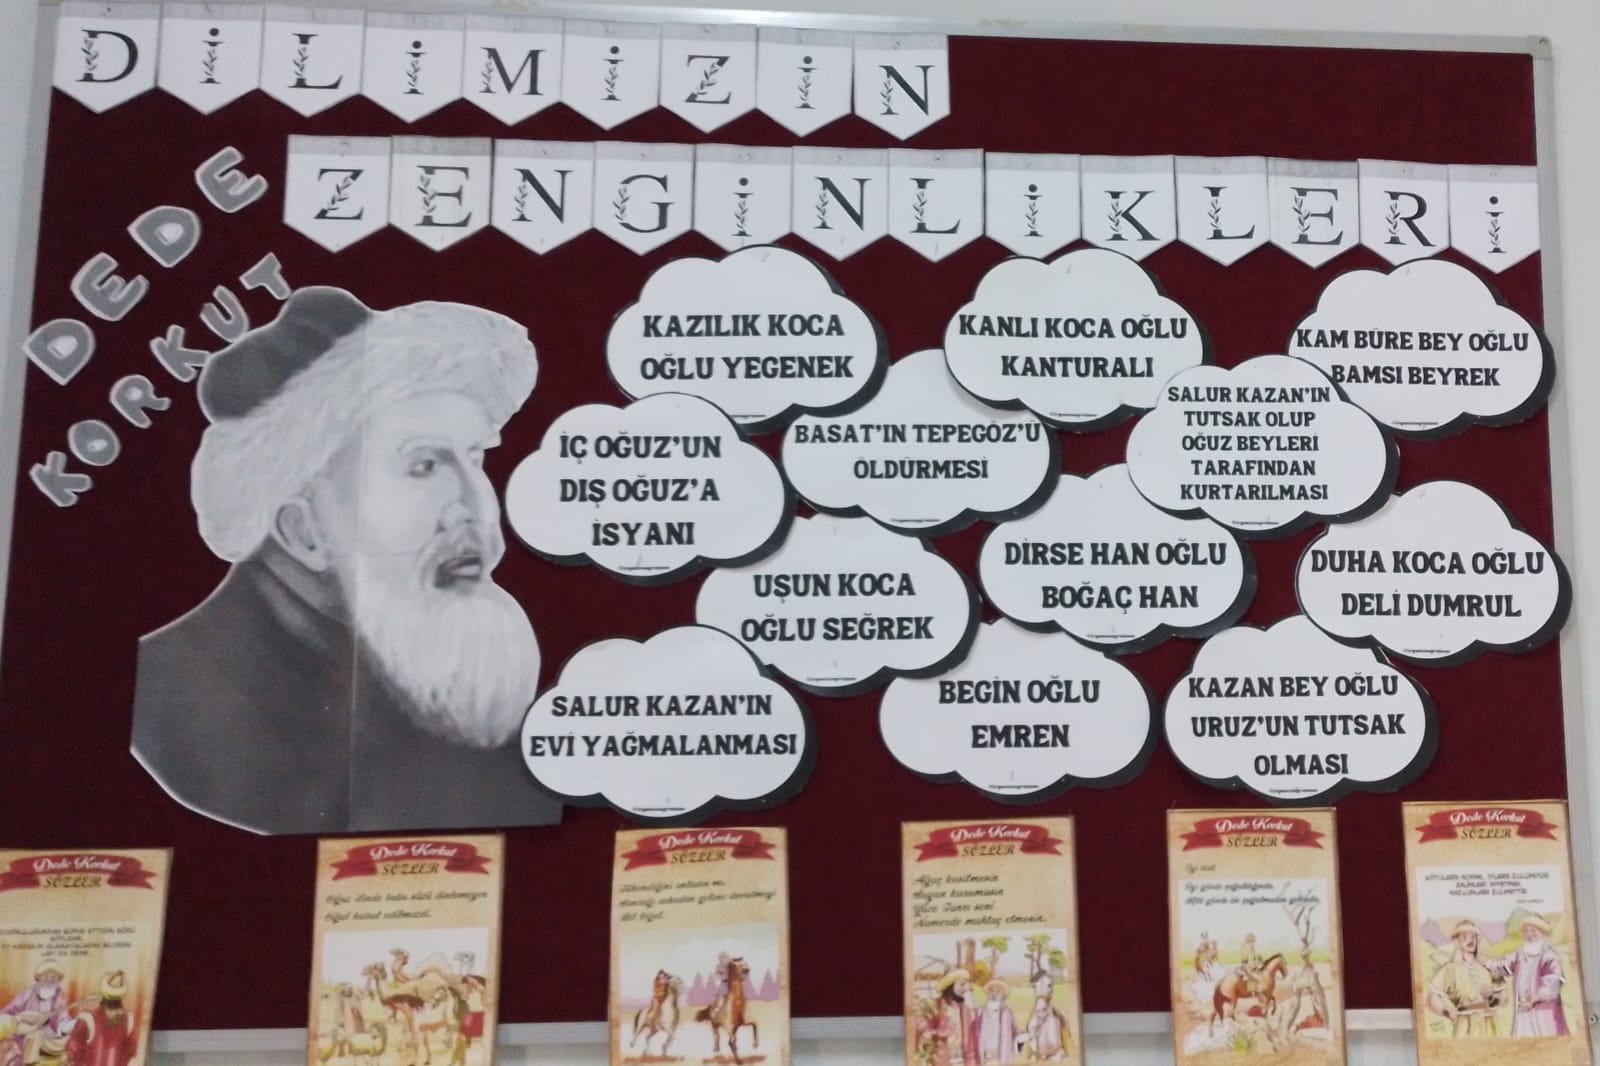 DİLİMİZİN
ZENGİNLİKLERİ
DEDE
KORKUT
KAZILIK KOCA
OĞLU YEGENEK
KANLI KOCA OĞLU
KANTURALI
KAM BÜRE BEY OĞLU
BAMSI BEYREK
İÇ OĞUZ'UN
DIŞ OĞUZ'A
İSYANI
BASAT'IN TEPEGÖZ'Ü
ÖLDÜRMESİ
SALUR KAZAN'IN
TUTSAK OLUP
OĞUZ BEYLERİ
TARAFINDAN
KURTARILMASI
UŞUN KOCA
OĞLU SEĞREK
DİRSE HAN OĞLU
BOĞAÇ HAN
DUHA KOCA OĞLU
DELİ DUMRUL
SALUR KAZAN'IN
EVİ YAĞMALANMASI
BEGİN OĞLU
EMREN
KAZAN BEY OĞLU
URUZ'UN TUTSAK
OLMASI
Dede Korkut
SÖZLER
Dede Korkut
SÖZLER
Oğuz ilinde baba sözü dinlemeyen
Oğul kabul edilmezdi.
Dede Korkut
SÖZLER
Dede Korkut
SÖZLER
Ağaç kesilmesin
Suyun kurumasın
Yüce Tanrı seni
Namerde muhtaç etmesin.
Dede Korkut
SÖZLER
Dede Korkut
SÖZLER